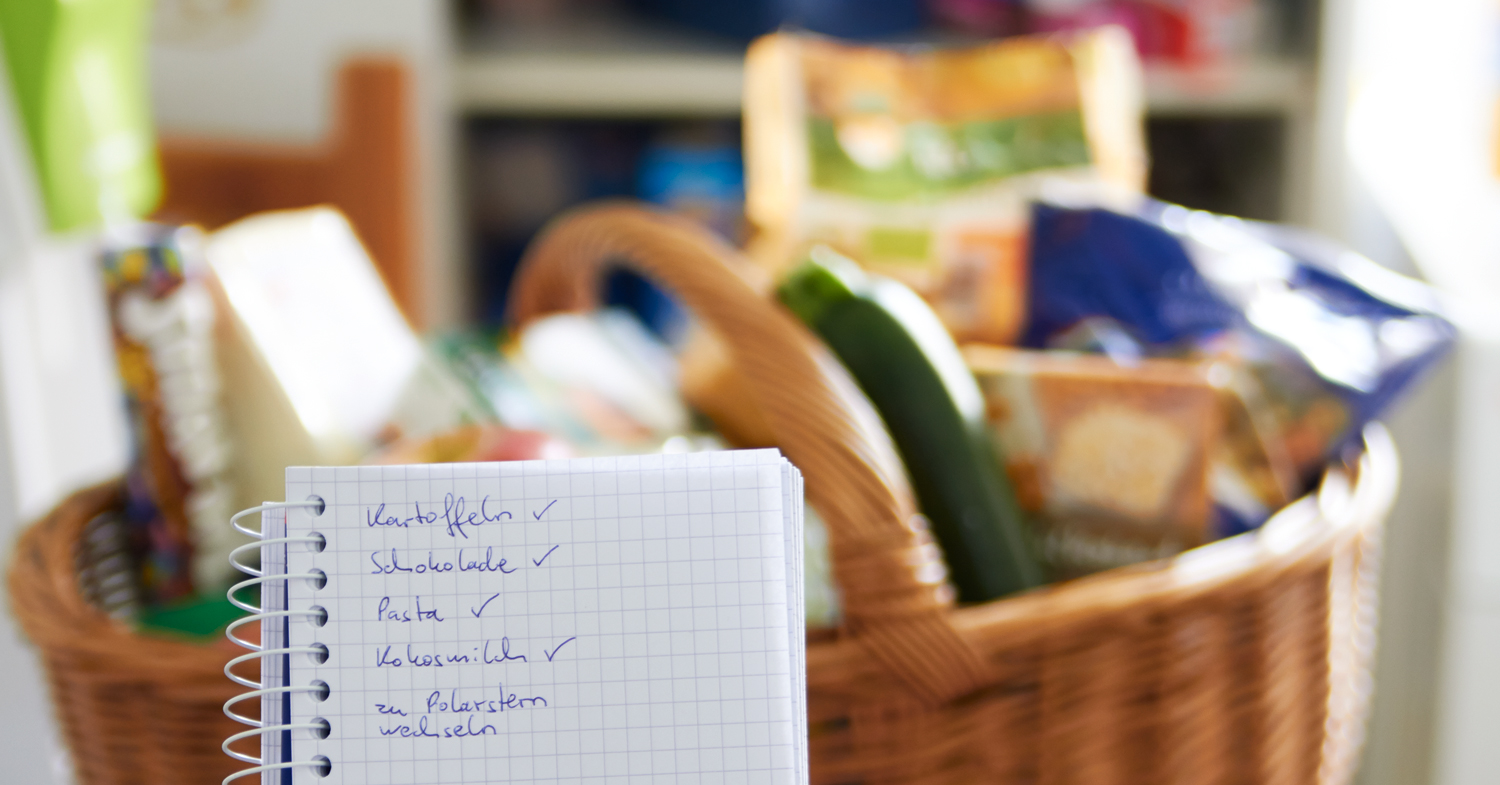 Kartoffeln ✓
Schokolade ✓
Pasta ✓
Kokosmilch ✓
zu Polarstern
wechseln